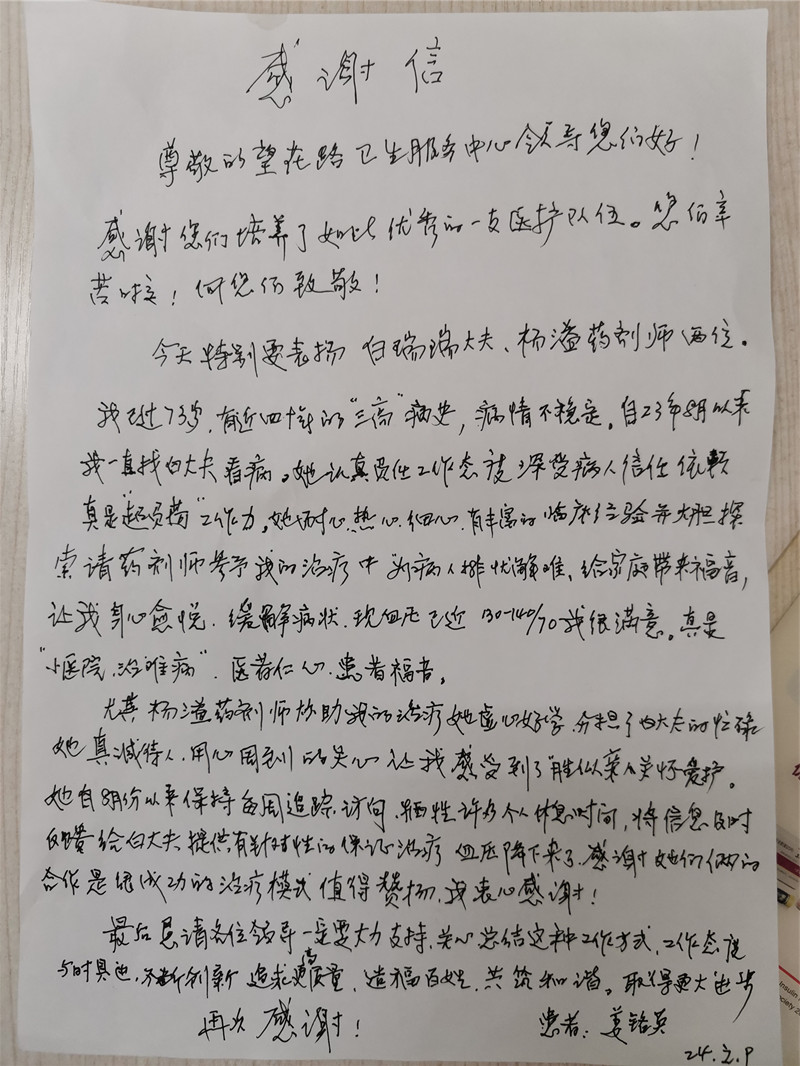 感谢信
尊敬的望在路卫生服务中心领导您们好！
感谢您们培养了如此优秀的一支医护队伍。您们辛
苦啦！向您们致敬！
今天特别要表扬 白瑞瑞大夫、杨溢药剂师两位。
我已过73岁，有近四十年的“三高”病史，病情不稳定。自23年8月以来
我一直找白大夫看病。她认真负责工作态度深受病人信任依赖
真是“超负荷”工作力。她耐心.热心.细心.有丰富的临床经验并大胆探
索请药剂师参予我的治疗中 为病人排忧解难、给家庭带来福音，
让我身心愈悦.缓解病状.现血压已近130-140/70我很满意。真是
“小医院.治难病”.医者仁心.患者福音。
尤其杨溢药剂师协助我的治疗她虚心好学.分担了白大夫的忙碌
她真诚待人.用心周到的关心让我感受到了胜似亲人关怀爱护。
她自8月份以来保持每周追踪.访问.牺牲许多个人休息时间，将信息及时
反馈给白大夫.提供有针对性的保证治疗 血压降下来了.感谢她们俩的
合作是很成功的治疗模式 值得赞扬.我衷心感谢！
最后恳请各位领导一定要大力支持.关心总结这种工作方式.工作态度
与时具进.不断创新 追求更高质量.造福百姓.共筑和谐。取得更大进步
再次感谢！ 患者：姜铭英
24.2.9
Insulin
ociety 20